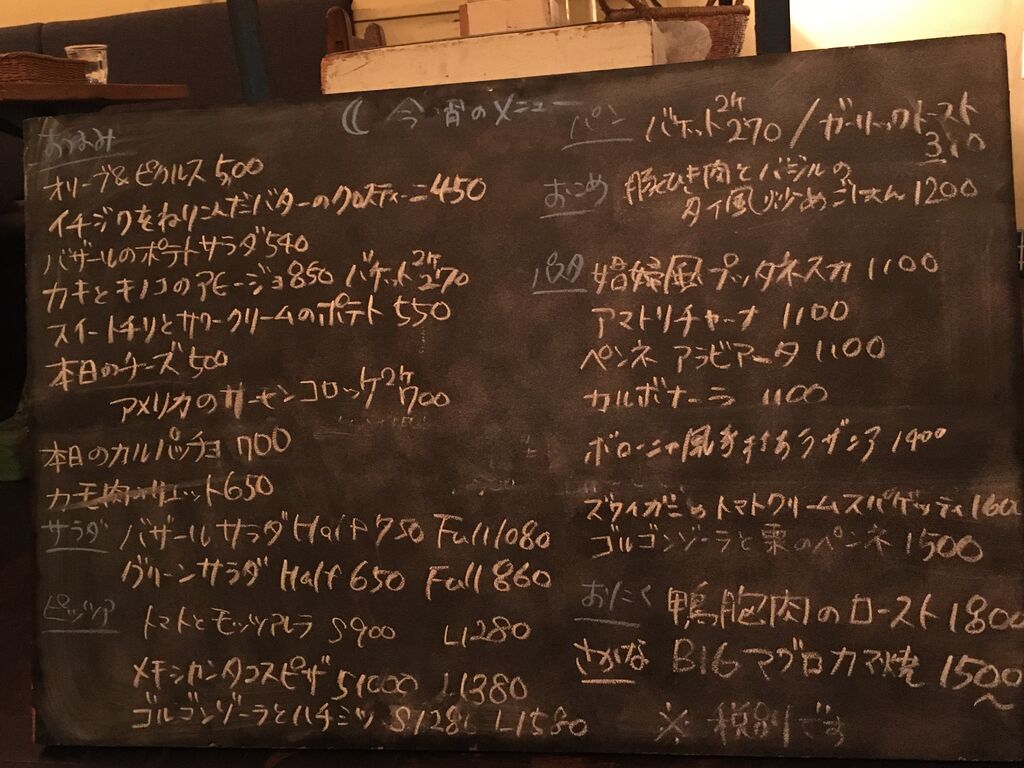 今宵のメニュー
おつまみ
オリーブ&ピクルス 500
イチジクをねりこんだバターのクロスティーニ 450
バザールのポテトサラダ 540
カキとキノコのアヒージョ 850 バケット2ケ270
スイートチリとサワークリームのポテト 550
本日のチーズ 500
アメリカのサーモンコロッケ2ケ700
本日のカルパッチョ 700
カモ肉のリエット 650
サラダ バザールサラダ Half 750 Full 1080
グリーンサラダ Half 650 Full 860
ピッツァ トマトとモッツアレラ S900 L1280
メキシカンタコスピザ S1000 L1380
ゴルゴンゾーラとハチミツ S1280 L1580
パン バケット2ケ270 / ガーリックトースト
310
おこめ 豚ひき肉とバジルの
タイ風炒めごはん 1200
パスタ 娼婦風プッタネスカ 1100
アマトリチャーナ 1100
ペンネ アラビアータ 1100
カルボナーラ 1100
ボローニャ風 ラザニア 1400
ズワイガニのトマトクリームスパゲッティ 1600
ゴルゴンゾーラと栗のペンネ 1500
おにく 鴨胸肉のロースト 1800
さかな BIGマグロカマ焼 1500〜
※税別です